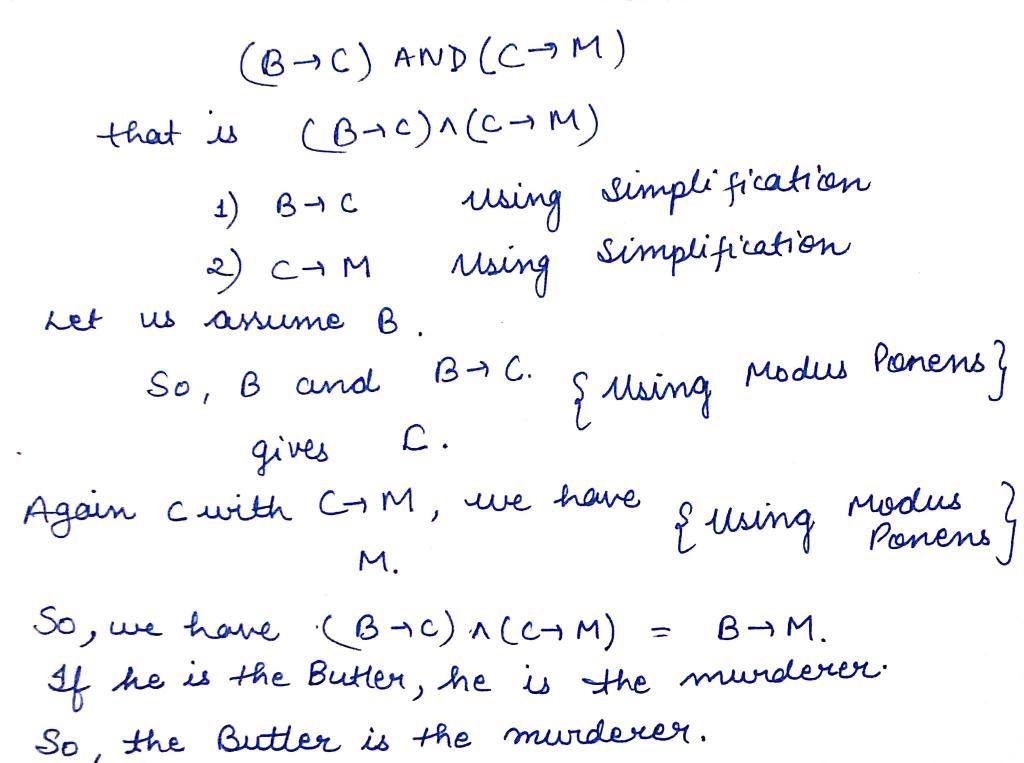 (B→C) AND (C→M)
that is (B→C)∧(C→M)
1) B→C using simplification
2) C→M using simplification
Let us assume B.
So, B and B→C. {using Modus Ponens}
gives C.
Again C with C→M, we have {using Modus Ponens}
M.
So, we have (B→C)∧(C→M) = B→M.
If he is the Butler, he is the murderer.
So, the Butler is the murderer.